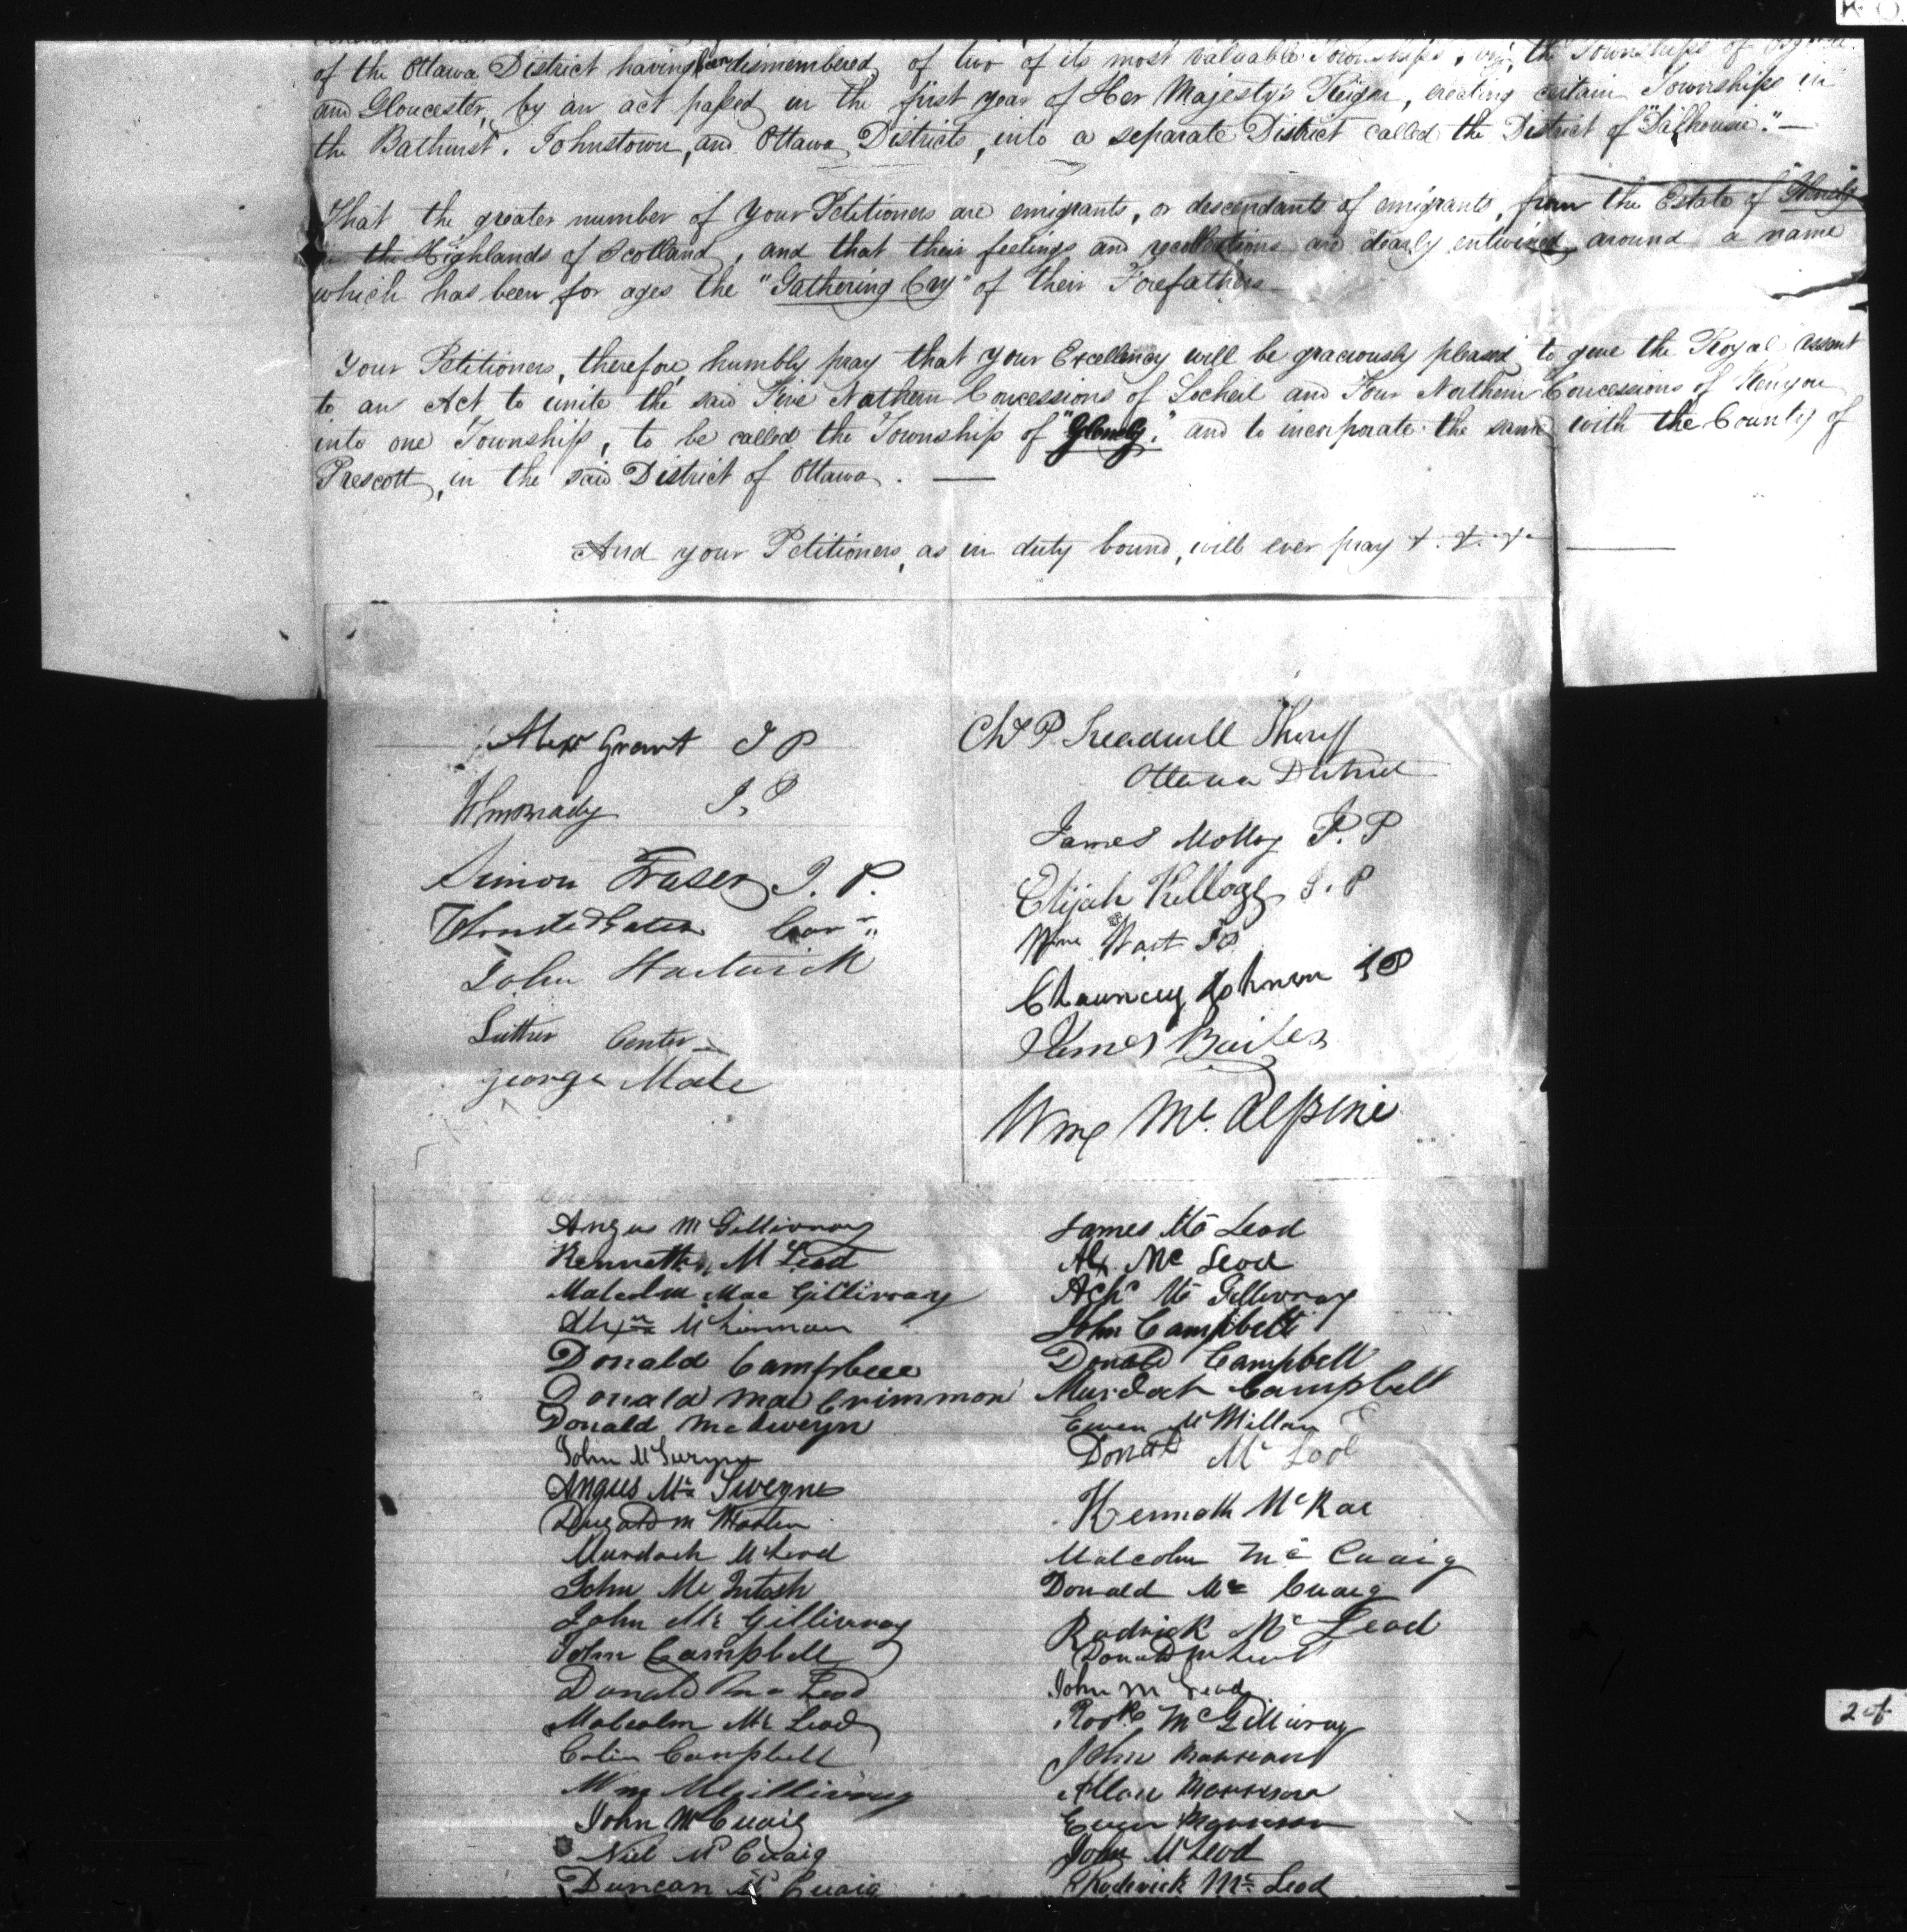 of the Ottawa District having been dismembered of two of its most valuable Townships, viz, the Townships of
and Gloucester, by an act passed in the first year of Her Majesty's Reign, erecting certain Townships in
the Bathurst, Johnstown, and Ottawa Districts, into a separate District called the District of "Dalhousie."—
That the greater number of your Petitioners are emigrants, or descendants of emigrants, from the Estate of "Glenelg"
in the Highlands of Scotland, and that their feelings and recollections are dearly entwined around a name
which has been for ages the "Gathering Cry" of their Forefathers
Your Petitioners, therefore, humbly pray that your Excellency will be graciously pleased to give the Royal assent
to an Act to unite the said Five Nothern Concessions of Locheil and Four Northern Concessions of Kenyon
into one Township, to be called the Township of "Glenelg," and to incorporate the same with the County of
Prescott, in the said District of Ottawa. —
And your Petitioners, as in duty bound, will ever pray &. &. &. —
Alexr Grant J P
Wm Brady J. P
Simon Fraser J. P.
John Hartwick
Luther Center
George Mode
Chs P. Treadwell Sheriff
Ottawa District
James Molloy J. P
Elijah Kellogg J. P
Wm Wait JP
Chauncey Johnson JP
James Bailes
Wm Mc. Alpine
Angus Mc Gillivray
Kenneth Mc Leod
Malcolm Mac Gillivray
Alexr McKinnon
Donald Campbell
Donald Mac Crimmon
Donald McSweyn
John McSweyn
Angus Mc Sweyn
Dugald Mc Master
Murdoch McLeod
John Mc Intosh
John Mc Gillivray
John Campbell
Donald Mc Leod
Malcolm Mc Leod
Colin Campbell
Wm McGillivray
John McCuaig
Niel McCuaig
Duncan McCuaig
James Mc Leod
Alx. Mc Leod
Achd Mc Gillivray
John Campbell
Donald Campbell
Murdoch Campbell
Ewen McMillan
Donald Mc Lod
Kenneth McRae
Malcolm Mc Cuaig
Donald Mc Cuaig
Rodrick Mc Leod
Donald McLeod
John Mc Leod
McGillivray
John Morrison
Allan Morrison
Ewen Morrison
John McLeod
Rhoderick Mc Leod
2 of